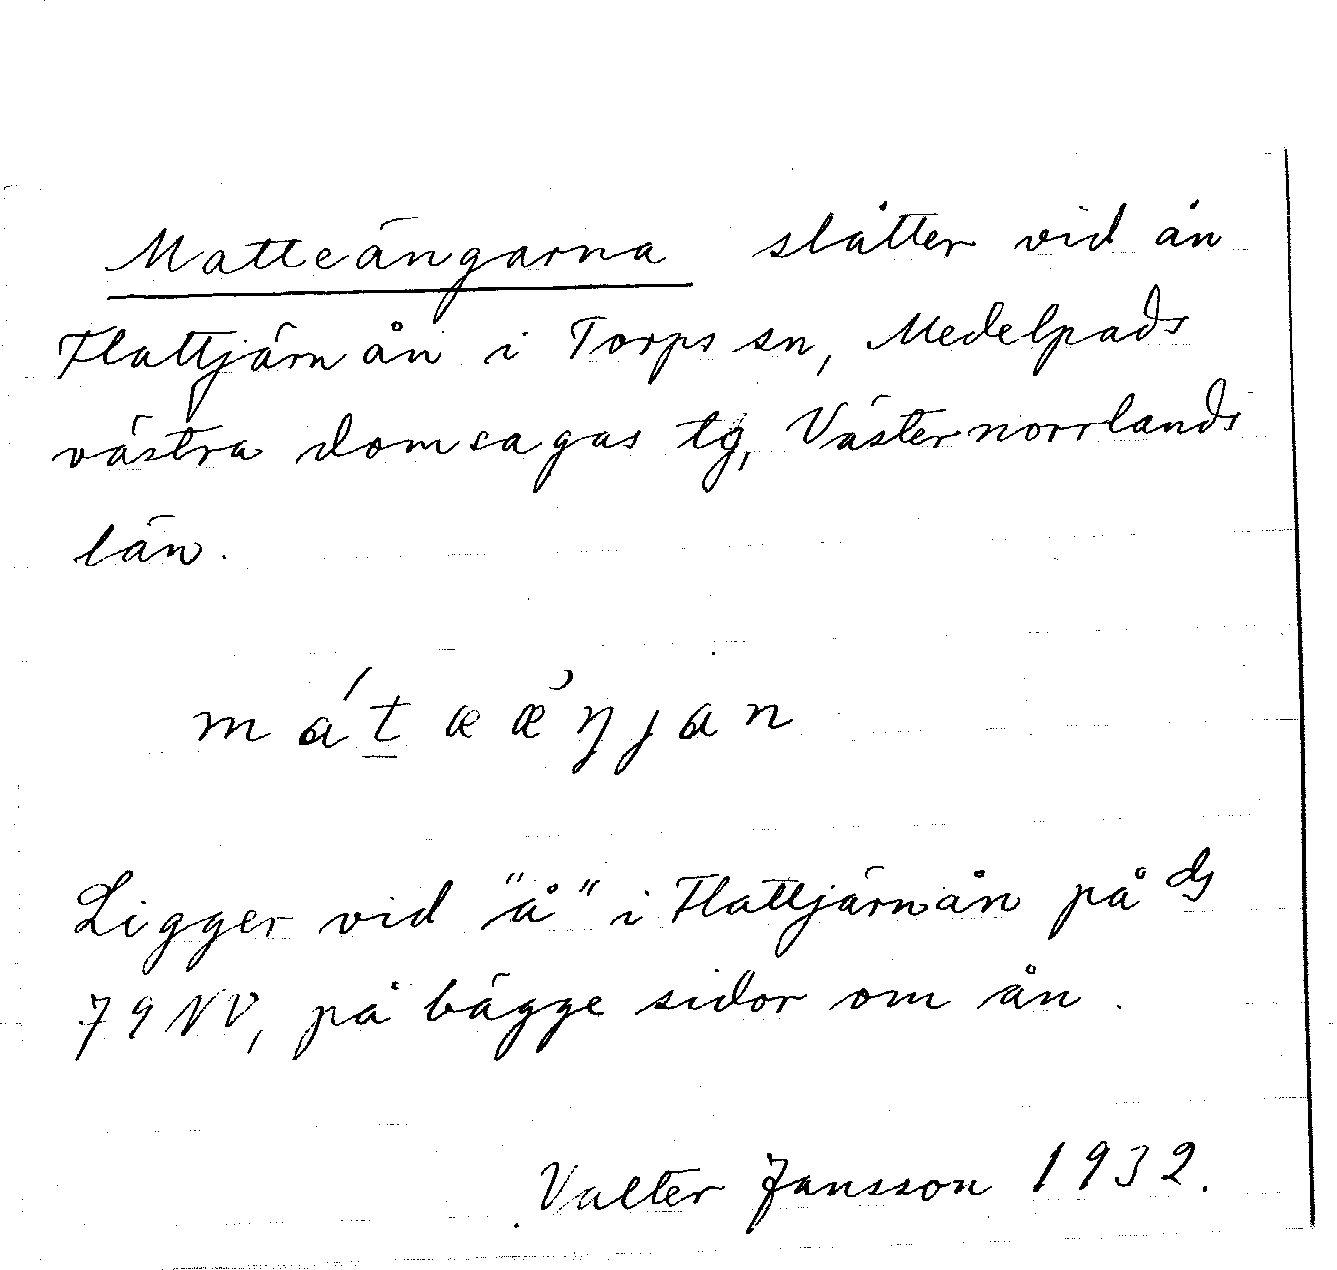 Matteängarna slåtter vid ån
Flattjärnån i Torps sn, Medelpads
västra domsagas tg, Västernorrlands
län.
mát̲ææ̉ŋjan
Ligger vid "å" i Flattjärnån på ds
79 NV, på bägge sidor om ån.
Valter Jansson 1932.